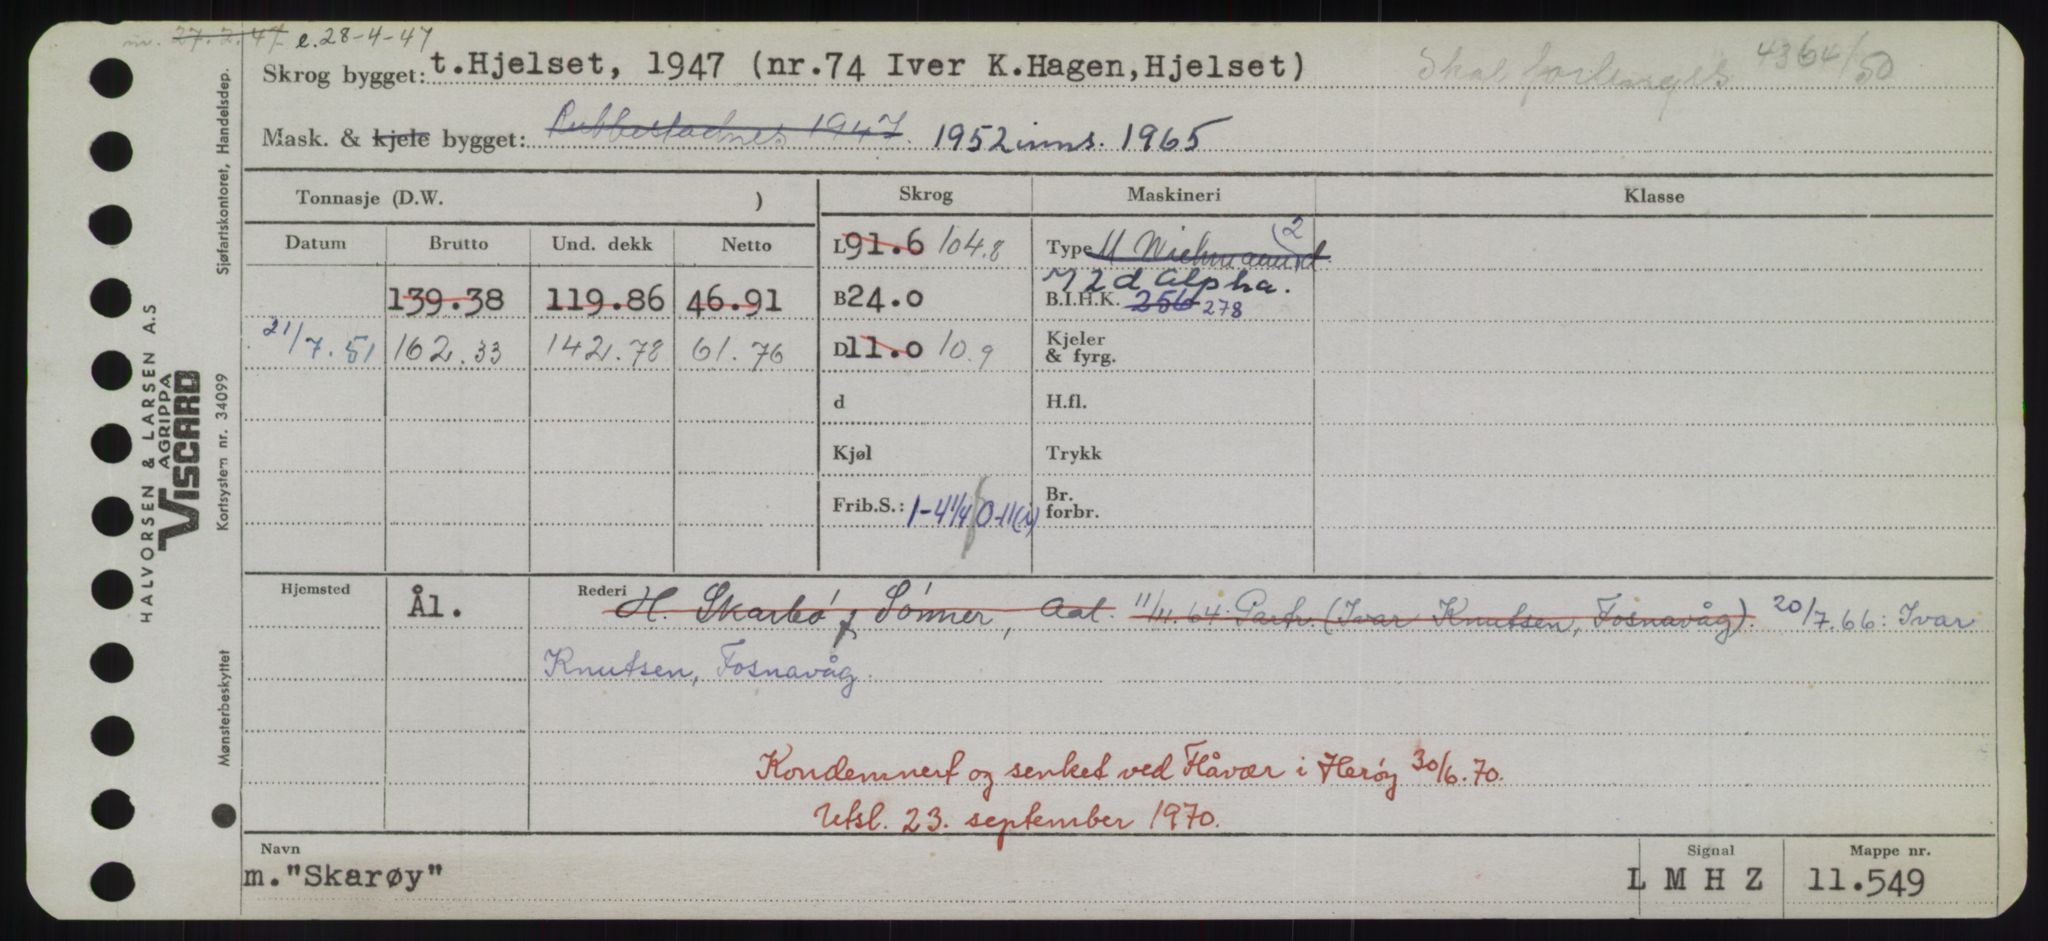 27.2.47 e.28-4-47
Skrog bygget: t.Hjelset, 1947 (nr.74 Iver K.Hagen,Hjelset) Skal forlenges 4364/50
Mask. & kjele bygget: Rubbestadnes 1947. 1952 inns. 1965
Tonnasje (D.W. ) Skrog Maskineri Klasse
Datum Brutto Und. dekk Netto L 91.6 104.8 Type M Wichmann 2 d.
M 2 d Alpha.
139.38 119.86 46.91 B 24.0 B.I.H.K. 256 278
21/7.51 162.33 142.78 61.76 D 11.0 10.9 Kjeler & fyrg.
d H.fl.
Kjøl Trykk
Frib.S.: 1-4 1/4 / 0-11(i) Br. forbr.
Hjemsted Ål. Rederi H. Skarbø & Sønner, Aal. 11/11.64 Partr. (Ivar Knutsen, Fosnavåg). 20/7.66: Ivar
Knutsen, Fosnavåg.
Kondemnert og senket ved Flåvær i Herøy 30/6.70.
Utsl. 23. september 1970.
Navn Signal Mappe nr.
m."Skarøy" L M H Z 11.549
HALVORSEN & LARSEN A.S
AGRIPPA
VISCARD
Sjøfartskontoret, Handelsdep.
Kortsystem nr. 34099
Mønsterbeskyttet